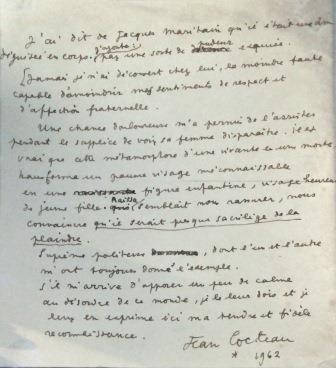 J'ai dit de Jacques Maritain qu'il était une âme
déguisée en corps. J'ajoute : par une sorte de pudeur exquise.
Jamais je n'ai découvert chez lui, la moindre faute
capable d'amoindrir mes sentiments de respect et
d'affection fraternelle.
Une chance douloureuse m'a permis de l'assister
pendant le supplice de voir sa femme disparaître. Il est
vrai que cette métamorphose d'une vivante en une morte
transforme un pauvre visage méconnaissable
en une figure enfantine, visage heureux
de jeune fille. Raïssa semblait nous rassurer, nous
convaincre qu'il serait presque sacrilège de la
plaindre.
Suprême politesse, dont l'un et l'autre
m'ont toujours donné l'exemple.
S'il m'arrive d'apporter un peu de calme
au désordre de ce monde, je le leur dois et je
leur en exprime ici ma tendre et fidèle
reconnaissance.
Jean Cocteau
* 1962